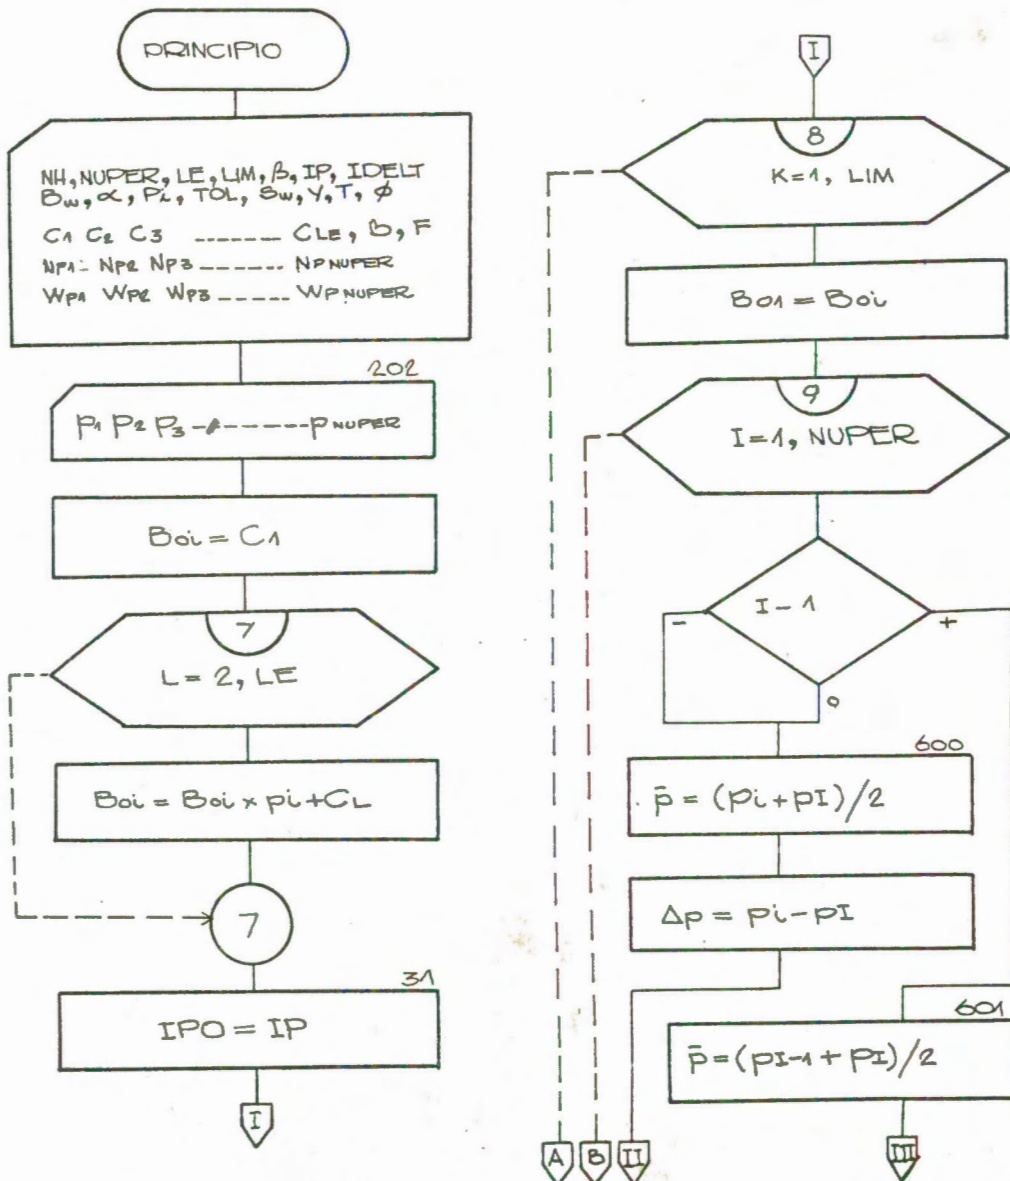 PRINCIPIO
NH, NUPER, LE, LIM, β, IP, IDELT
Bw, α, Pi, TOL, Sw, Y, T, ϕ
C1 C2 C3 ------- CLE, B, F
NP1- NP2 NP3 ------- NP NUPER
WP1 WP2 WP3 ----- WP NUPER
202
P1 P2 P3 -------- P NUPER
Boi = C1
7
L = 2, LE
Boi = Boi × pi + CL
7
31
IPO = IP
I
I
8
K=1, LIM
Bo1 = Boi
9
I=1, NUPER
I-1
- +
0
600
p̄ = (pi+pI)/2
Δp = pi-pI
601
p̄ = (pI-1 + pI)/2
A B II III